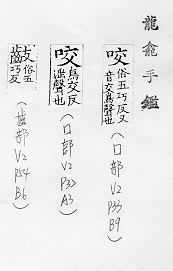 龍龕手鑑
咬 俗五巧反又
音交鳥聲也
(口部
V2
P33
B9)
咬 鳥交反
淫聲也
(口部
V2
P32
A3)
俗五
巧反
(齒部
V2
P54
B6)